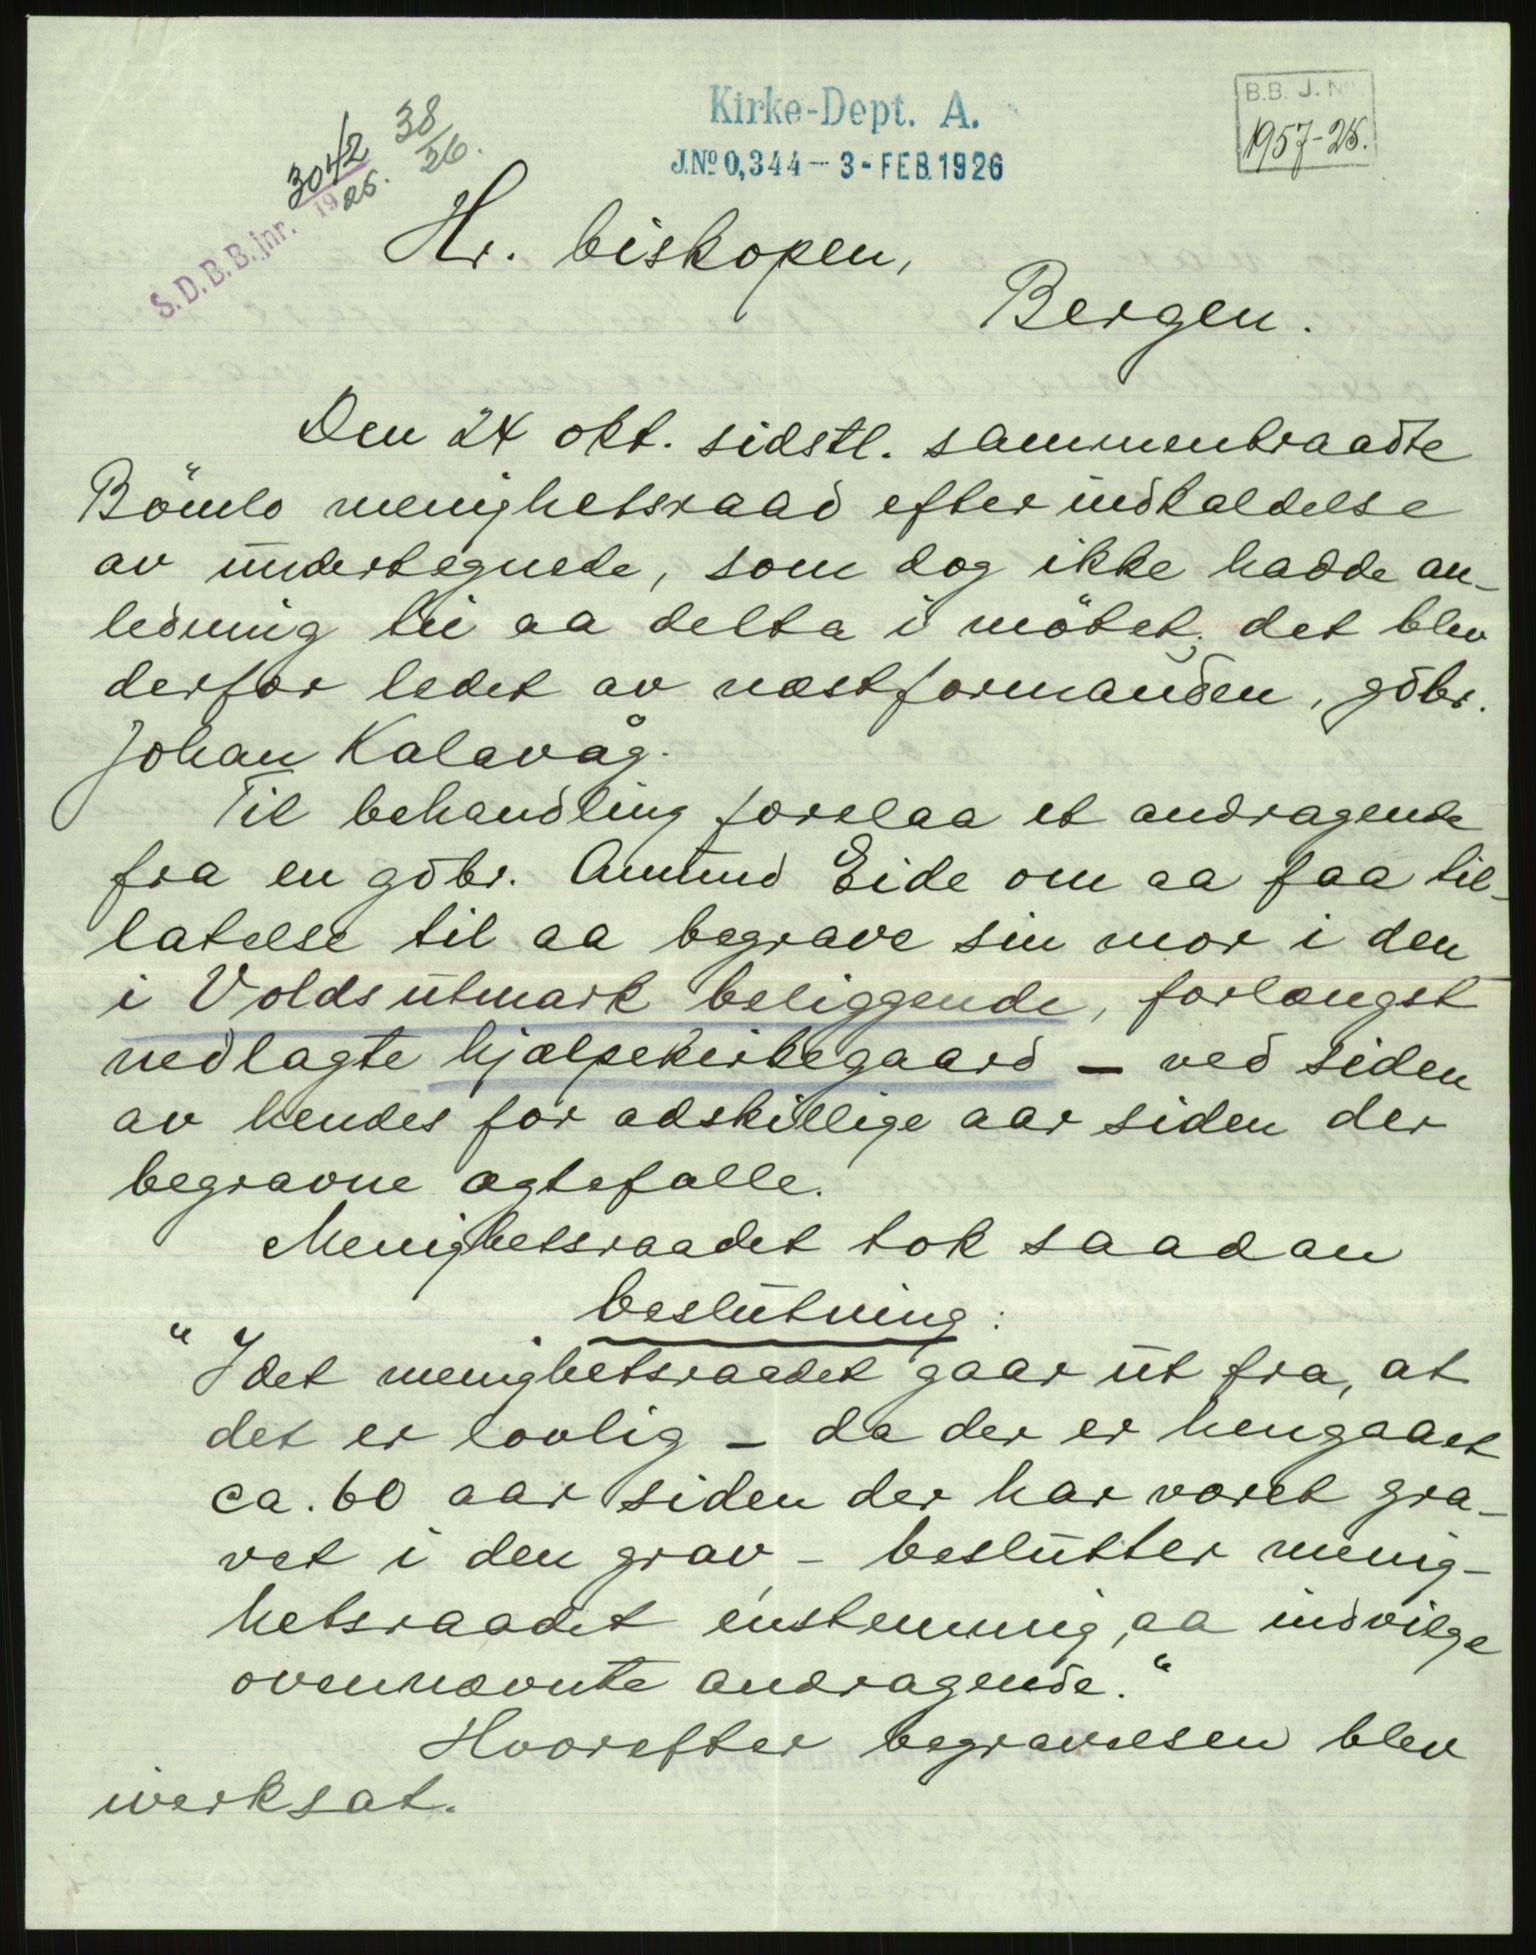 Kirke-Dept. A.
J.Nº 0,344 - 3 - FEB. 1926
B.B. J. Nº
1957-25.
S.D.B.B. jnr. 3042
1925.
38
26.
Hr. biskopen,
Bergen.
Den 24 okt. sidstl. sammentraadte
Bömlo menighetsraad efter indkaldelse
av undertegnede, som dog ikke hadde an-
ledning til aa delta i mötet; det blev
derfor ledet av næstformanden, gdbr.
Johan Kalavåg.
Til behandling forelaa et andragende
fra en gdbr. Amund Eide om aa faa til-
latelse til aa begrave sin mor i den
i Volds utmark beliggende, forlængst
nedlagte hjælpekirkegaard – ved siden
av hendes for adskillige aar siden der
begravne ægtefælle.
Menighetsraadet tok saadan
beslutning:
"Idet menighetsraadet gaar ut fra, at
det er lovlig – da der er hengaaet
ca. 60 aar siden der har været gra-
vet i den grav, – beslutter menig-
hetsraadet enstemmig, aa indvilge
ovennævnte andragende."
Hvorefter begravelsen blev
iverksat.